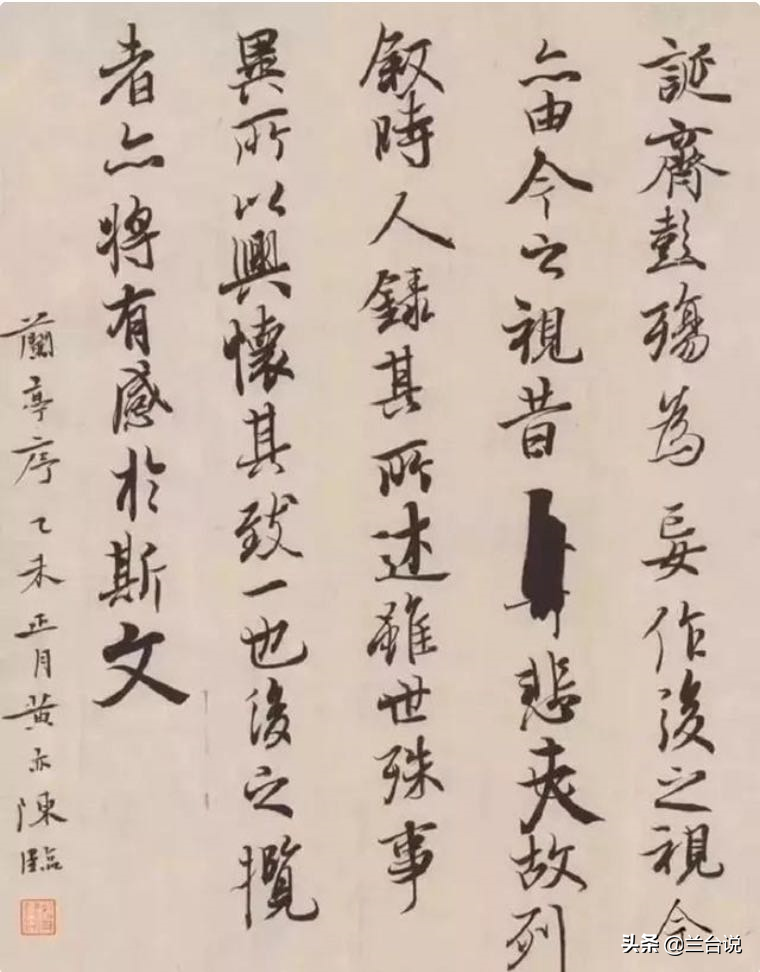 誕齊彭殤為妄作後之視今
亦由今之視昔悲夫故列
叙時人錄其所述雖世殊事
異所以興懷其致一也後之攬
者亦將有感於斯文
蘭亭序乙未正月黃亦陳臨
头条 @兰台说